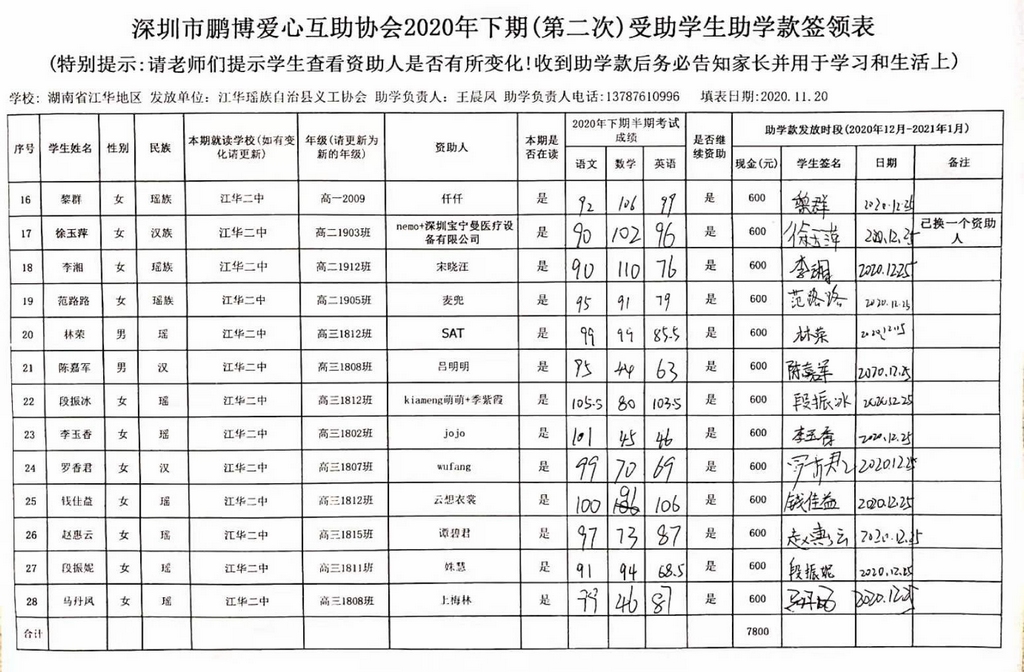 深圳市鹏博爱心互助协会2020年下期(第二次)受助学生助学款签领表
(特别提示:请老师们提示学生查看资助人是否有所变化!收到助学款后务必告知家长并用于学习和生活上)
学校: 湖南省江华地区 发放单位: 江华瑶族自治县义工协会 助学负责人: 王晨风 助学负责人电话:13787610996 填表日期:2020.11.20
序号 学生姓名 性别 民族 本期就读学校(如有变化请更新) 年级(请更新为新的年级) 资助人 本期是否在读 2020年下期半期考试成绩 语文 数学 英语 是否继续资助 助学款发放时段(2020年12月-2021年1月) 现金(元) 学生签名 日期 备注
16 黎群 女 瑶族 江华二中 高一2009 仟仟 是 92 106 99 是 600 黎群 2020.12.25
17 徐玉萍 女 汉族 江华二中 高二1903班 nemo+深圳宝宁曼医疗设备有限公司 是 90 102 96 是 600 徐玉萍 2020.12.25 已换一个资助人
18 李湘 女 瑶族 江华二中 高二1912班 宋晓汪 是 90 110 76 是 600 李湘 2020.12.25
19 范路路 女 瑶族 江华二中 高二1905班 麦兜 是 95 91 79 是 600 范路路 2020.12.25
20 林荣 男 瑶 江华二中 高三1812班 SAT 是 99 99 85.5 是 600 林荣 2020.12.25
21 陈嘉军 男 汉 江华二中 高三1808班 吕明明 是 85 44 63 是 600 陈嘉军 2020.12.25
22 段振冰 女 瑶 江华二中 高三1812班 kiameng萌萌+季紫霞 是 105.5 80 103.5 是 600 段振冰 2020.12.25
23 李玉香 女 瑶 江华二中 高三1802班 jojo 是 101 45 46 是 600 李玉香 2020.12.25
24 罗香君 女 汉 江华二中 高三1807班 wufang 是 99 70 69 是 600 罗香君 2020.12.25
25 钱佳益 女 瑶 江华二中 高三1812班 云想衣裳 是 100 96 106 是 600 钱佳益 2020.12.25
26 赵惠云 女 瑶 江华二中 高三1815班 谭碧君 是 97 73 87 是 600 赵惠云 2020.12.25
27 段振妮 女 瑶 江华二中 高三1811班 姝慧 是 91 94 68.5 是 600 段振妮 2020.12.25
28 马丹凤 女 瑶 江华二中 高三1808班 上海林 是 79 46 87 是 600 2020.12.25
合计 7800